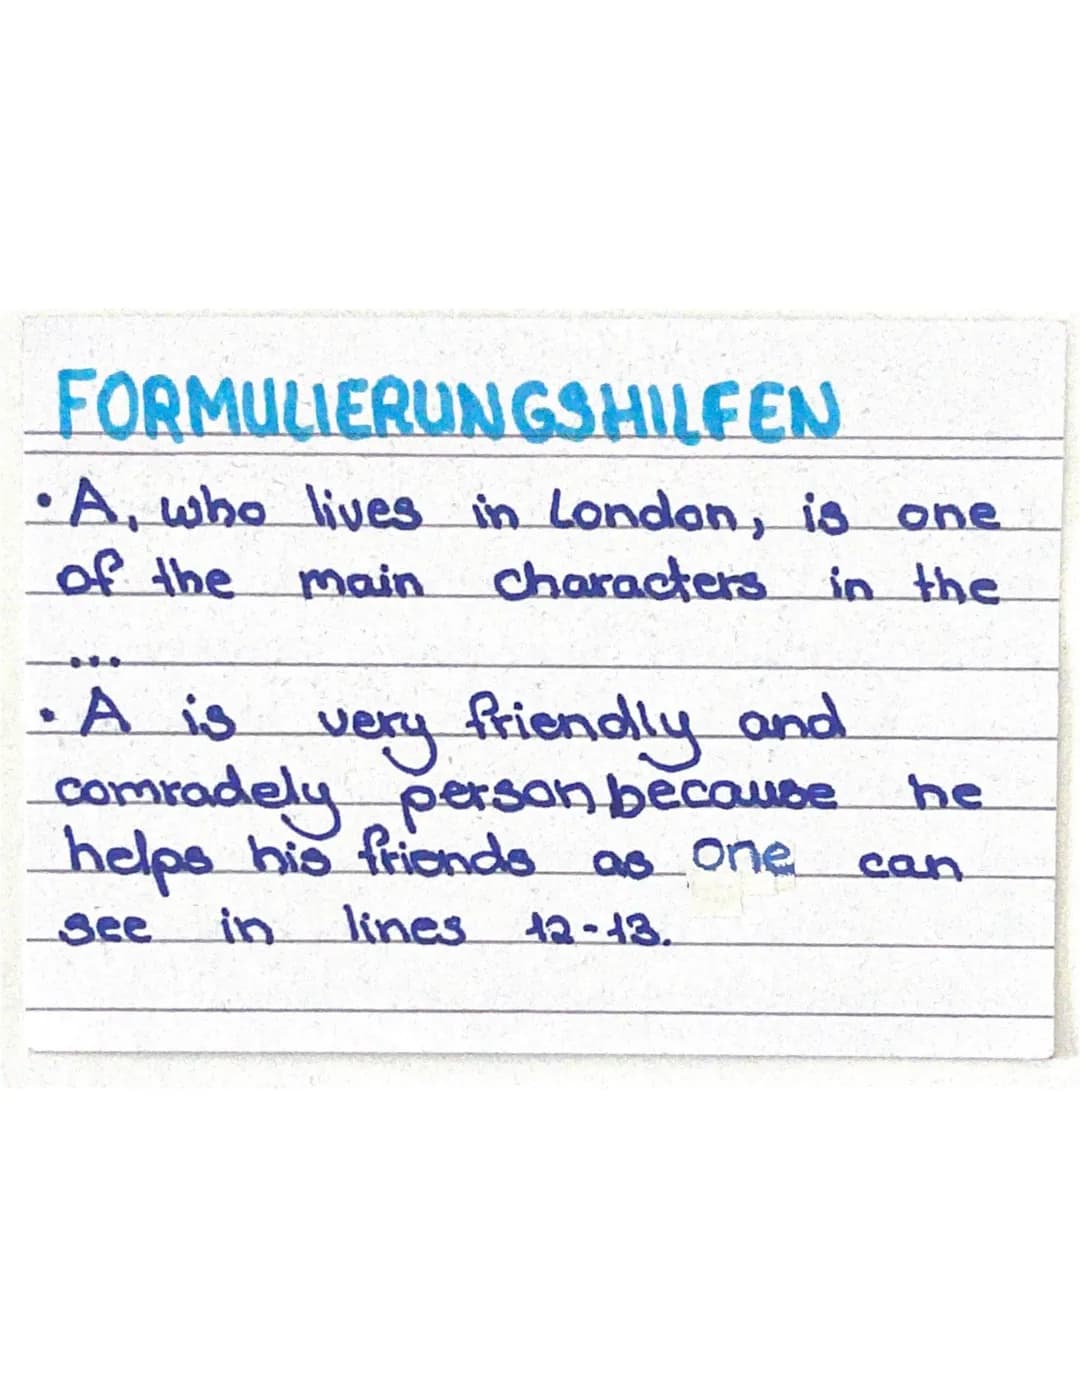 FORMULIERUNGSHILFEN
• A, who lives in London, is one
of the main characters in the
...
• A is very friendly and
comradely person because he
helps his friends as one can
see in lines 12-13.